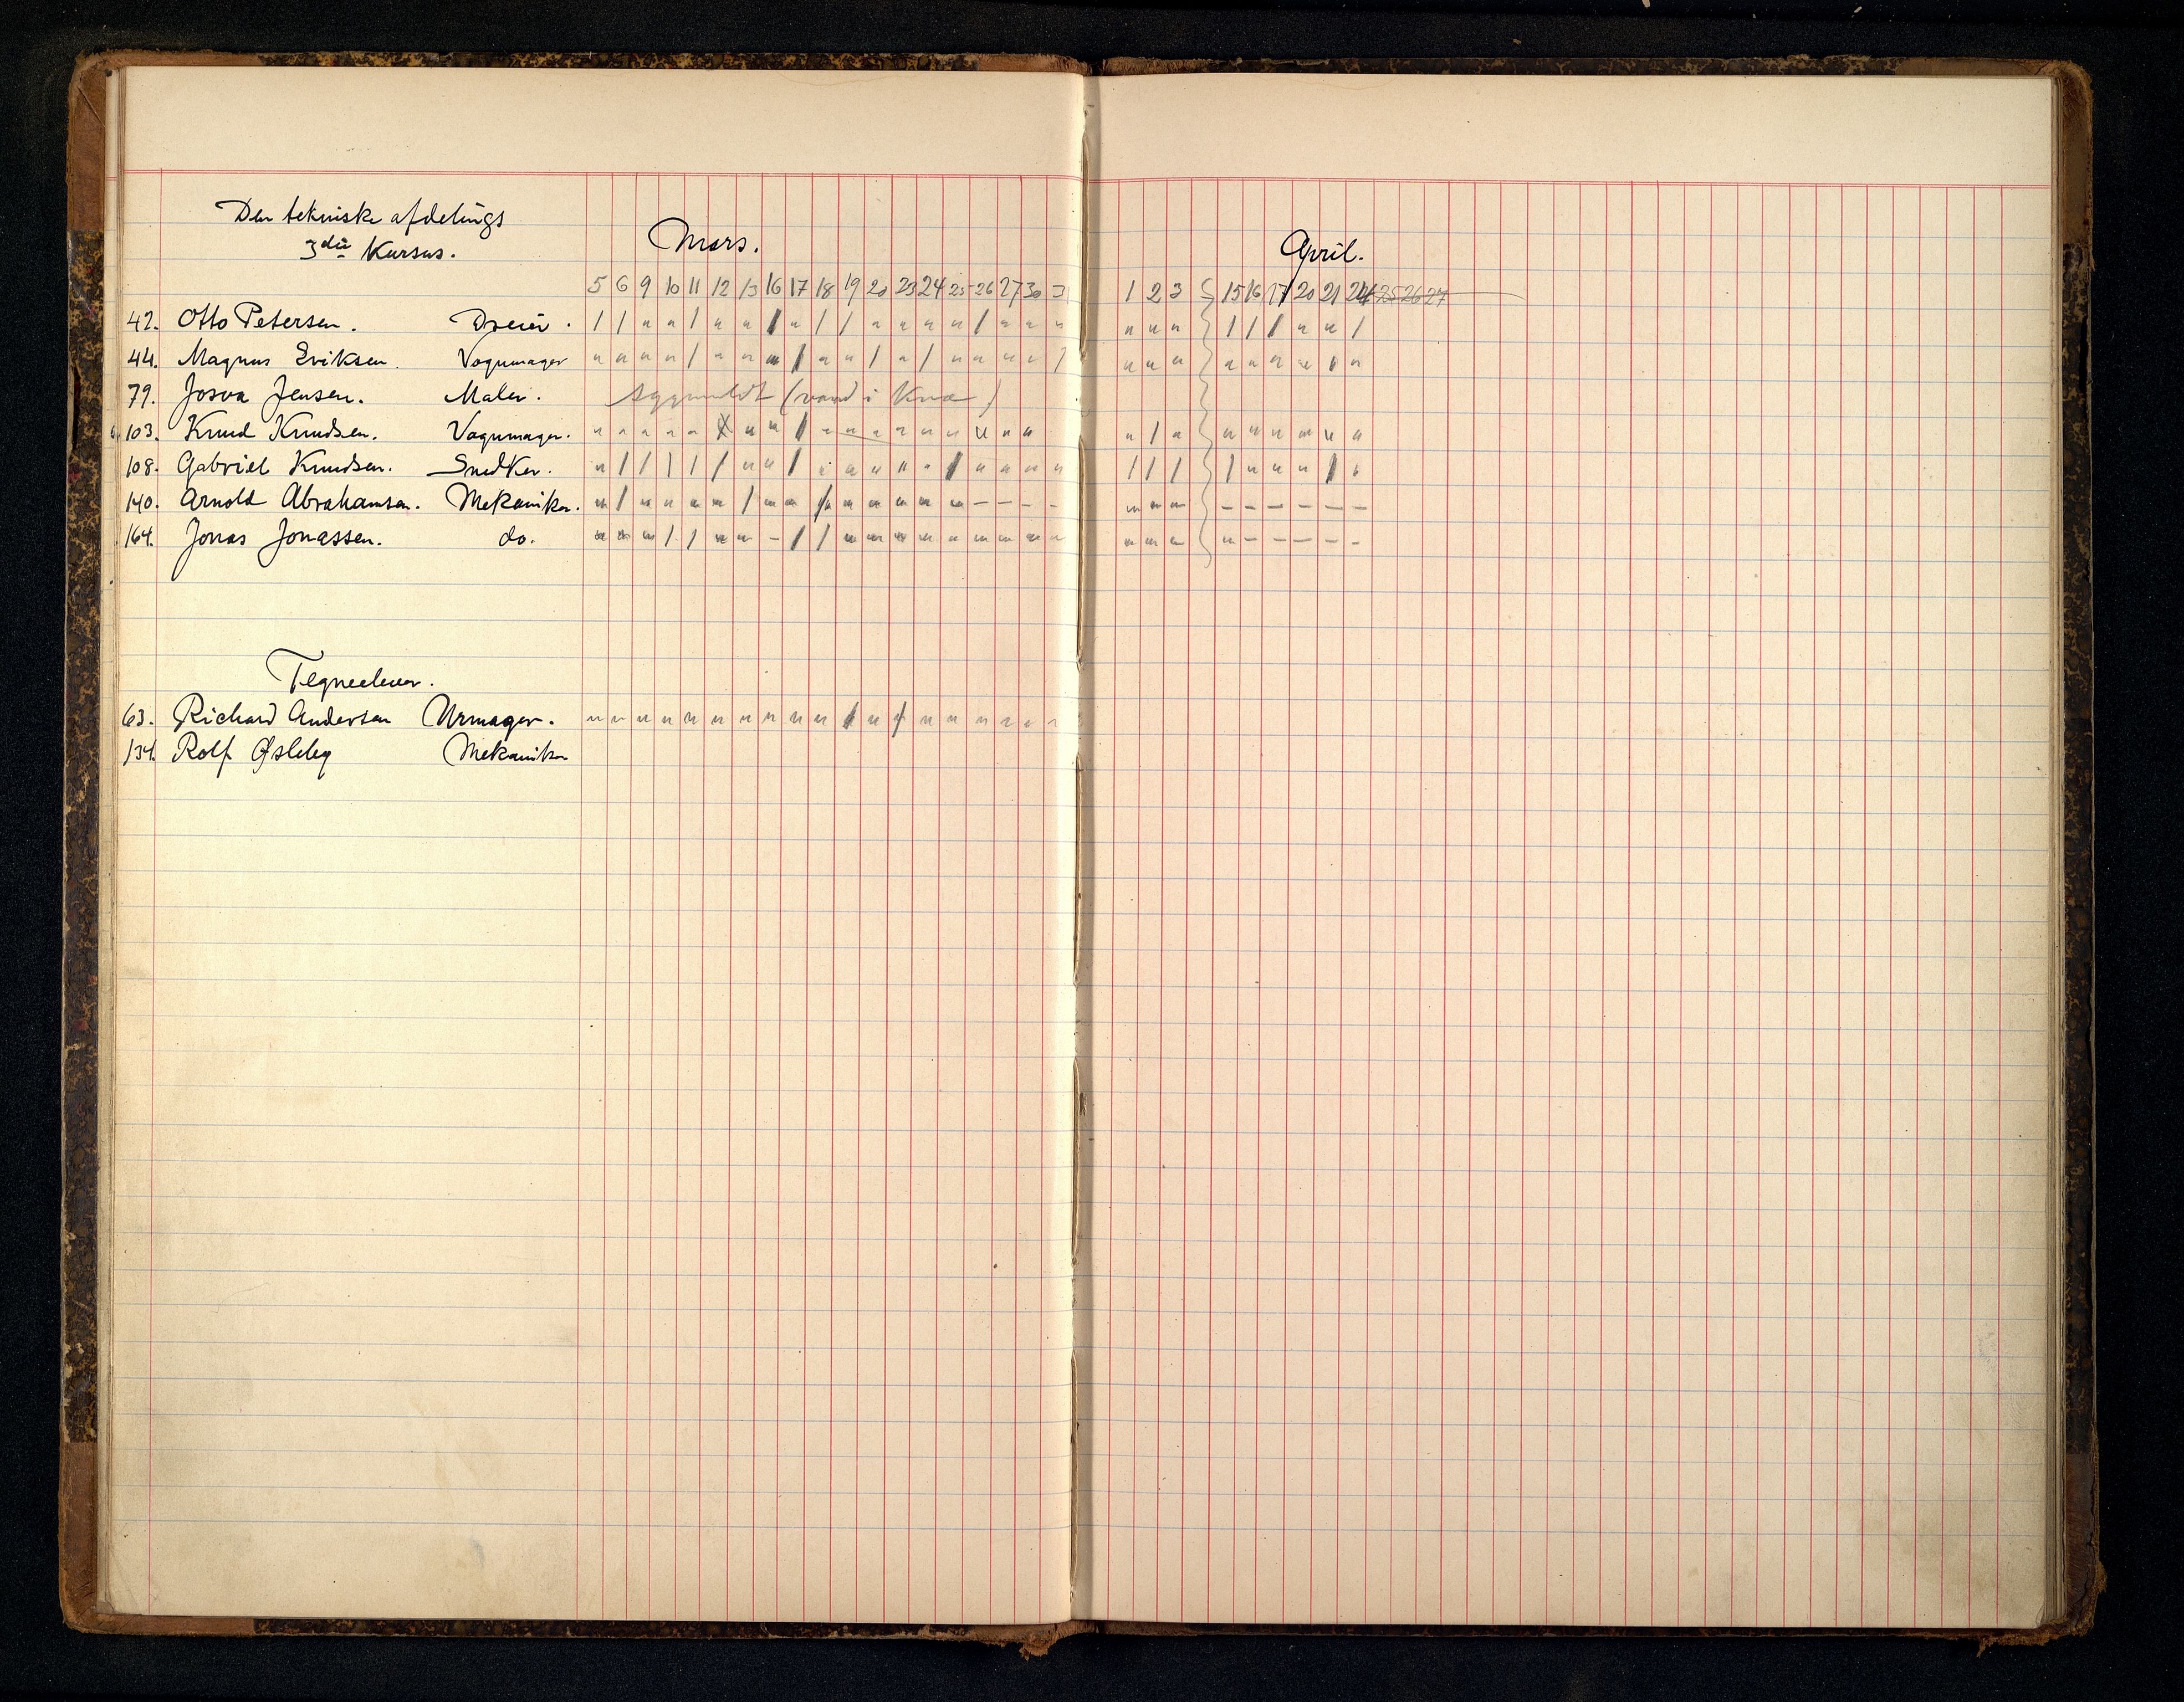 Den tekniske afdelings
3die Kursus.
Mars.
April.
5 6 9 10 11 12 13 16 17 18 19 20 23 24 25 26 27 30 31
1 2 3 15 16 17 20 21 24 25 26 27
42. Otto Petersen. Dreier.
44. Magnus Eriksen. Vognmager
79. Josva Jensen. Maler. Sygmeldt (vand i Knæ)
103. Knud Knudsen. Vognmager.
108. Gabriel Knudsen. Snedker.
140. Arnold Abrahamsen. Mekaniker.
164. Jonas Jonassen. do.
Tegneelever.
63. Richard Andersen Urmager.
134. Rolf Mekaniker